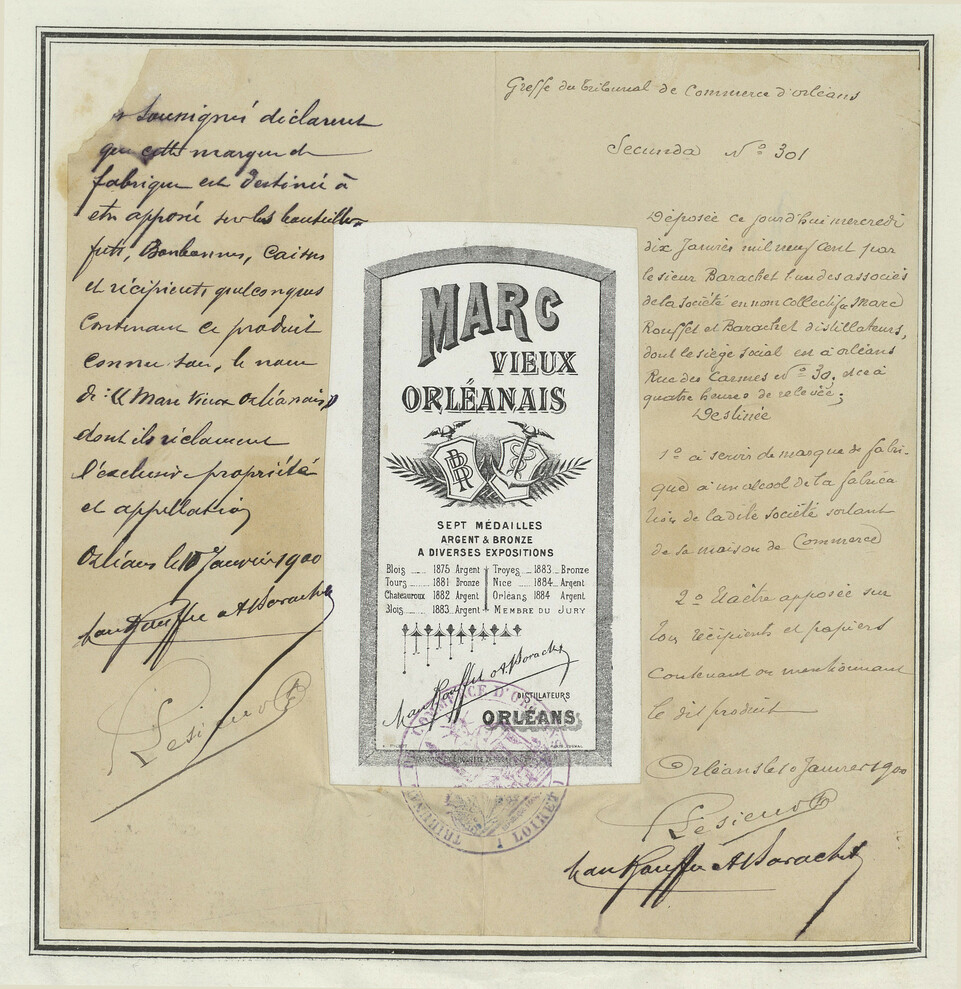 soussignés déclarent
que cette marque de
fabrique est destinée à
etre apposée sur les bouteilles
futs, Bonbonnes, Caisses
et récipients quelconques
Contenant ce produit
connu sous le nom
de: "Marc Vieux Orléanais"
dont ils réclament
l'exclusive propriété
et appellation
Orléans le 10 Janvier 1900
A Barachet
Lesieur
MARC
VIEUX
ORLÉANAIS
BR
SEPT MÉDAILLES
ARGENT & BRONZE
A DIVERSES EXPOSITIONS
Blois ..... 1875 Argent
Tours ..... 1881 Bronze
Chateauroux 1882 Argent
Blois ..... 1883 Argent
Troyes ..... 1883 Bronze
Nice ..... 1884 Argent
Orléans 1884 Argent
MEMBRE DU JURY
A Barachet
DISTILLATEURS
ORLÉANS
TRIBUNAL DE COMMERCE D'ORLÉANS
(LOIRET)
Greffe du Tribunal de Commerce d'orléans
Secunda No 301
Déposée ce jourd'hui mercredi
dix Janvier mil neuf cent par
le sieur Barachet l'un des associés
de la société en nom collectif Marc
Rouffet et Barachet distillateurs,
dont le siège social est à orléans
Rue des Carmes No 30, et ce à
quatre heures de relevée;
Destinée
1o à servir de marque de fabri-
que à un alcool de la fabrica
tion de la dite société sortant
de sa maison de Commerce
2o Et à être apposée sur
tous récipients et papiers
Contenant ou mentionnant
le dit produit
Orléans le 10 Janvier 1900
Lesieur
A Barachet